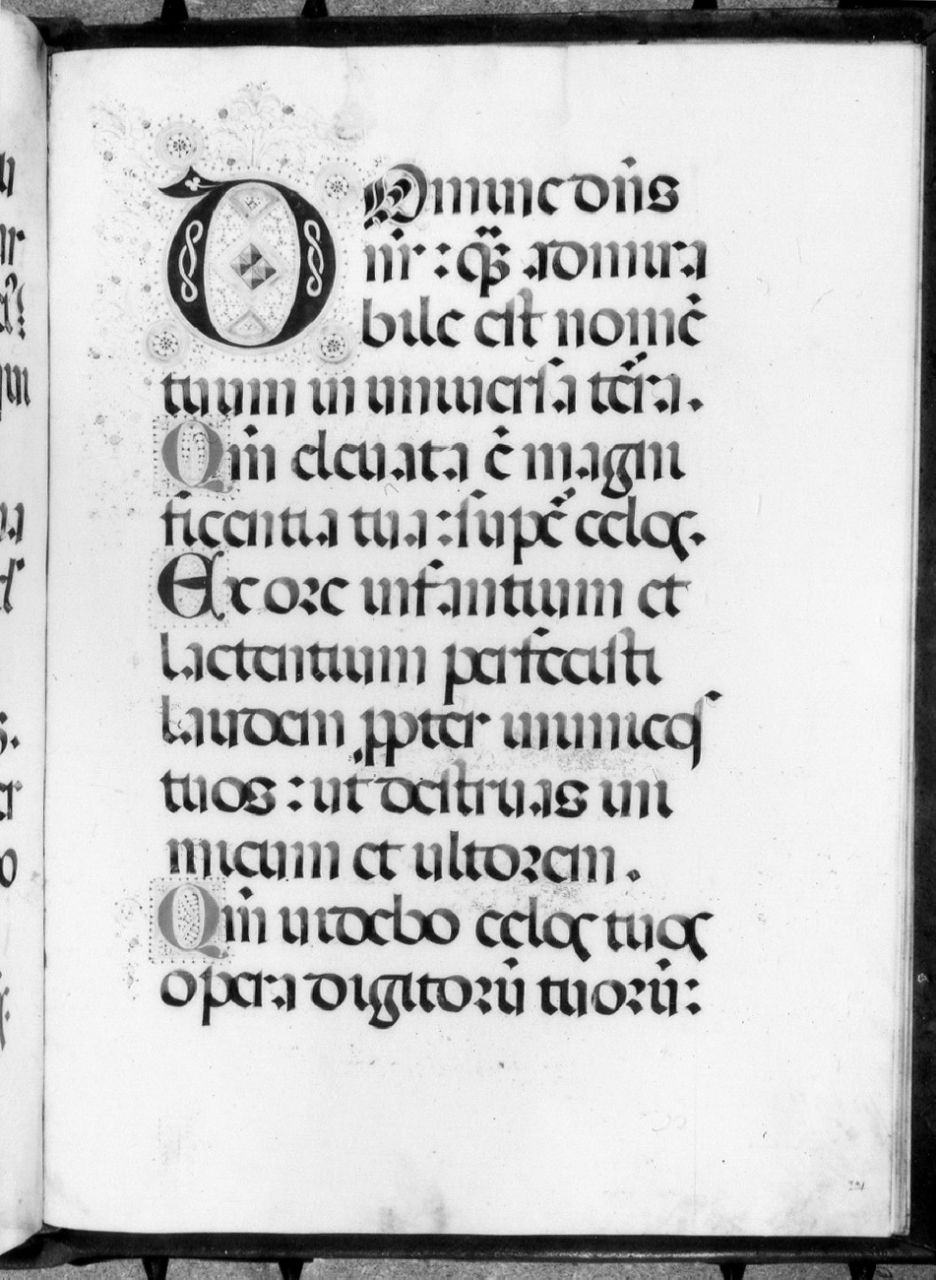 DOmine dn̄s
nr̄ : q̄ȝ admira
bile est nomē
tuum in uniuersa tēra.
Qm̄ eleuata ē magni
ficentia tua : sup̄ cęloꝝ.
Ex ore infantium et
lactentium perfecisti
laudem ꝓpter inimicos
tuos : ut destruas ini
micum et ultorem .
Qm̄ uidebo cęlos tuos
opera digitorū tuorū: